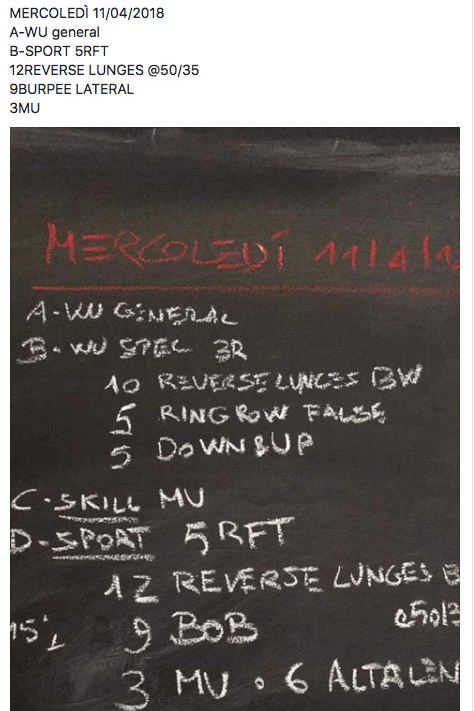 MERCOLEDÌ 11/04/2018
A-WU general
B-SPORT 5RFT
12REVERSE LUNGES @50/35
9BURPEE LATERAL
3MU
MERCOLEDÍ 11/4/1
A-WU GENERAL
B-WU SPEC 3R
10 REVERSE LUNGES BW
5 RING ROW FALSE
5 DOWN&UP
C-SKILL MU
D-SPORT 5RFT
12 REVERSE LUNGES B
@50/3
15'L 9 BOB
3 MU o 6 ALTALEN